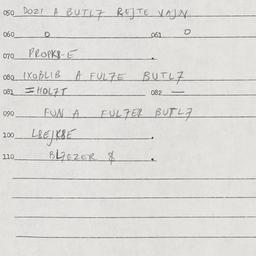 050 DOZI A BUTL7 REJTE VAJN
060 D 061 D
070 PROPK8-E
080 IXOBLIB A FUL7E BUTL7
081 =HOL7T 082 —
090 FUN A FUL7ER BUTL7
100 L8EJK8E
110 BL7EZER 8